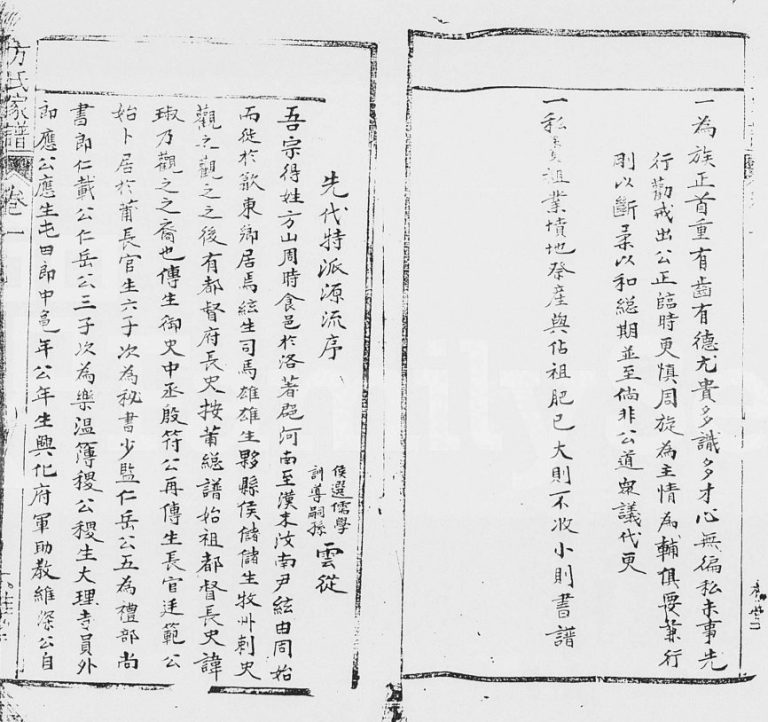 一為族正首重有齒有德尤貴多識多才心無偏私未事先
行勸戒出公正臨時更慎周旋為主情為輔俱要兼行
剛以斷柔以和総期並至倘非公道衆議代更
一私祖業墳地祭產與佔祖肥己大則不收小則書譜
先代特派源流序
候選儒學
訓導嗣孫
雲從
吾宗得姓方山周時食邑於洛著郡河南至漢末汝南尹紘由周始
而徙於歙東鄉居焉紘生司馬雄雄生黟縣侯儲儲生牧州刺史
觀之觀之之後有都督府長史按莆総譜始祖都督長史諱
琡乃觀之之裔也傳生御史中丞殷符公再傳生長官廷範公
始卜居於莆長官生六子次為秘書少監仁岳公五為禮部尚
書郎仁載公仁岳公三子次為樂温簿稷公稷生大理寺員外
郎應公應生屯田郎中龜年公年生興化府軍助教維深公自
方氏家譜
卷一